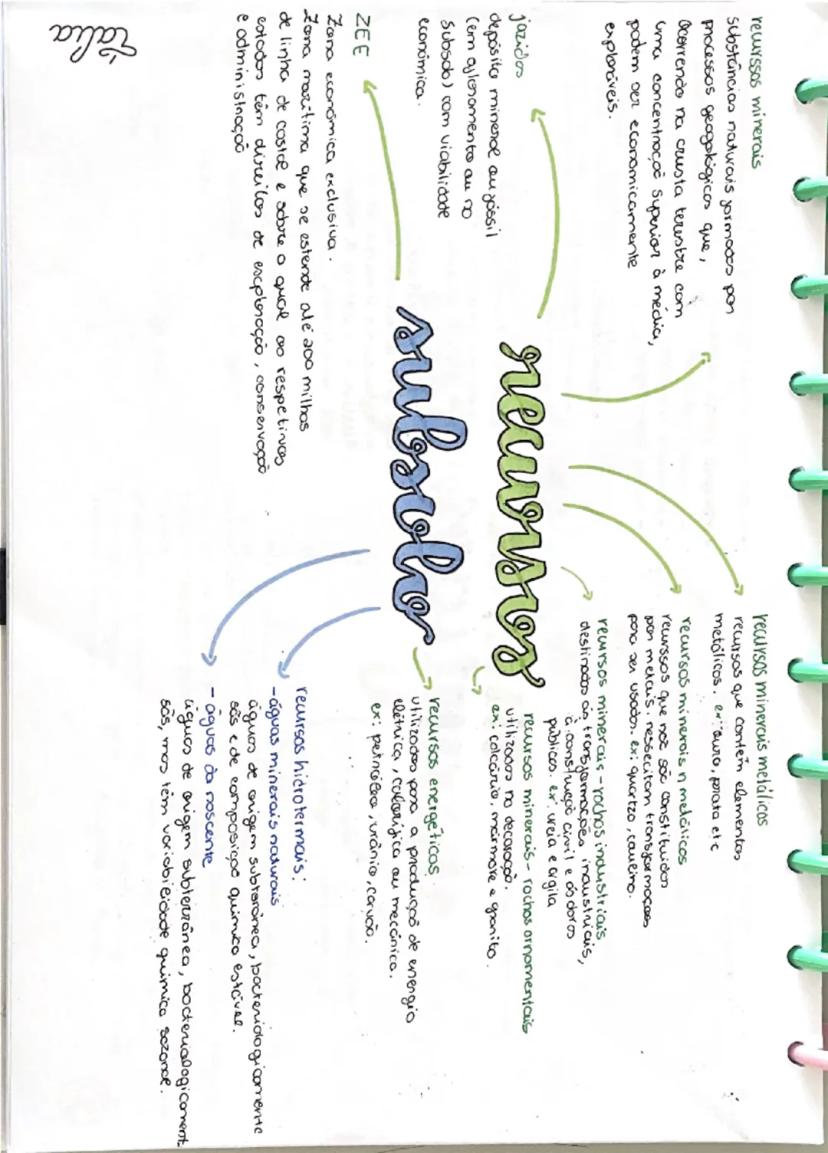 recurssos minerais
substâncias naturais formados por
processos geogológicos que,
ocorrendo na crusta terestre com
uma concentração superior à média,
podem ser economicamente
exploráveis.
jazidos
depósito mineral ou fóssil
(em afloramento ou no
subsolo) com viabilidade
económica.
ZEE
Zona económica exclusiva.
Zona marítima que se estende até 200 milhas
de linha de costa e sobre a qual os respetivos
estados têm direitos de exploração, conservação
e administração
recursos
subsolo
recursos minerais metálicos
recursos que contêm elementos
metálicos. ex: ouro, prata etc
recursos minerais n metálicos
recurssos que not são constituidos
por metais. nessecitam transformaçoes
para ser usados. ex: quartzo, caulino.
recursos minerais - rochas industriais
destinados às transformações industriais,
à construção civil e às obras
públicas. ex: areia e argila
recursos minerais - rochas ornamentais
utilizados na decoração.
ex: calcário, mármore e granito.
recursos energéticos
utilizados para a produção de energia
elétrica, calorífica ou mecânica.
ex: petróleo, urânio, carvão.
recursos hidrotermais:
-águas minerais naturais
águas de origem subterânea, bacteriologicamente
sãs e de composição química estável.
- águas da nascente
águas de origem subterrânea, bacteriologicament
sãs, mas têm variabilidade química sazonal.